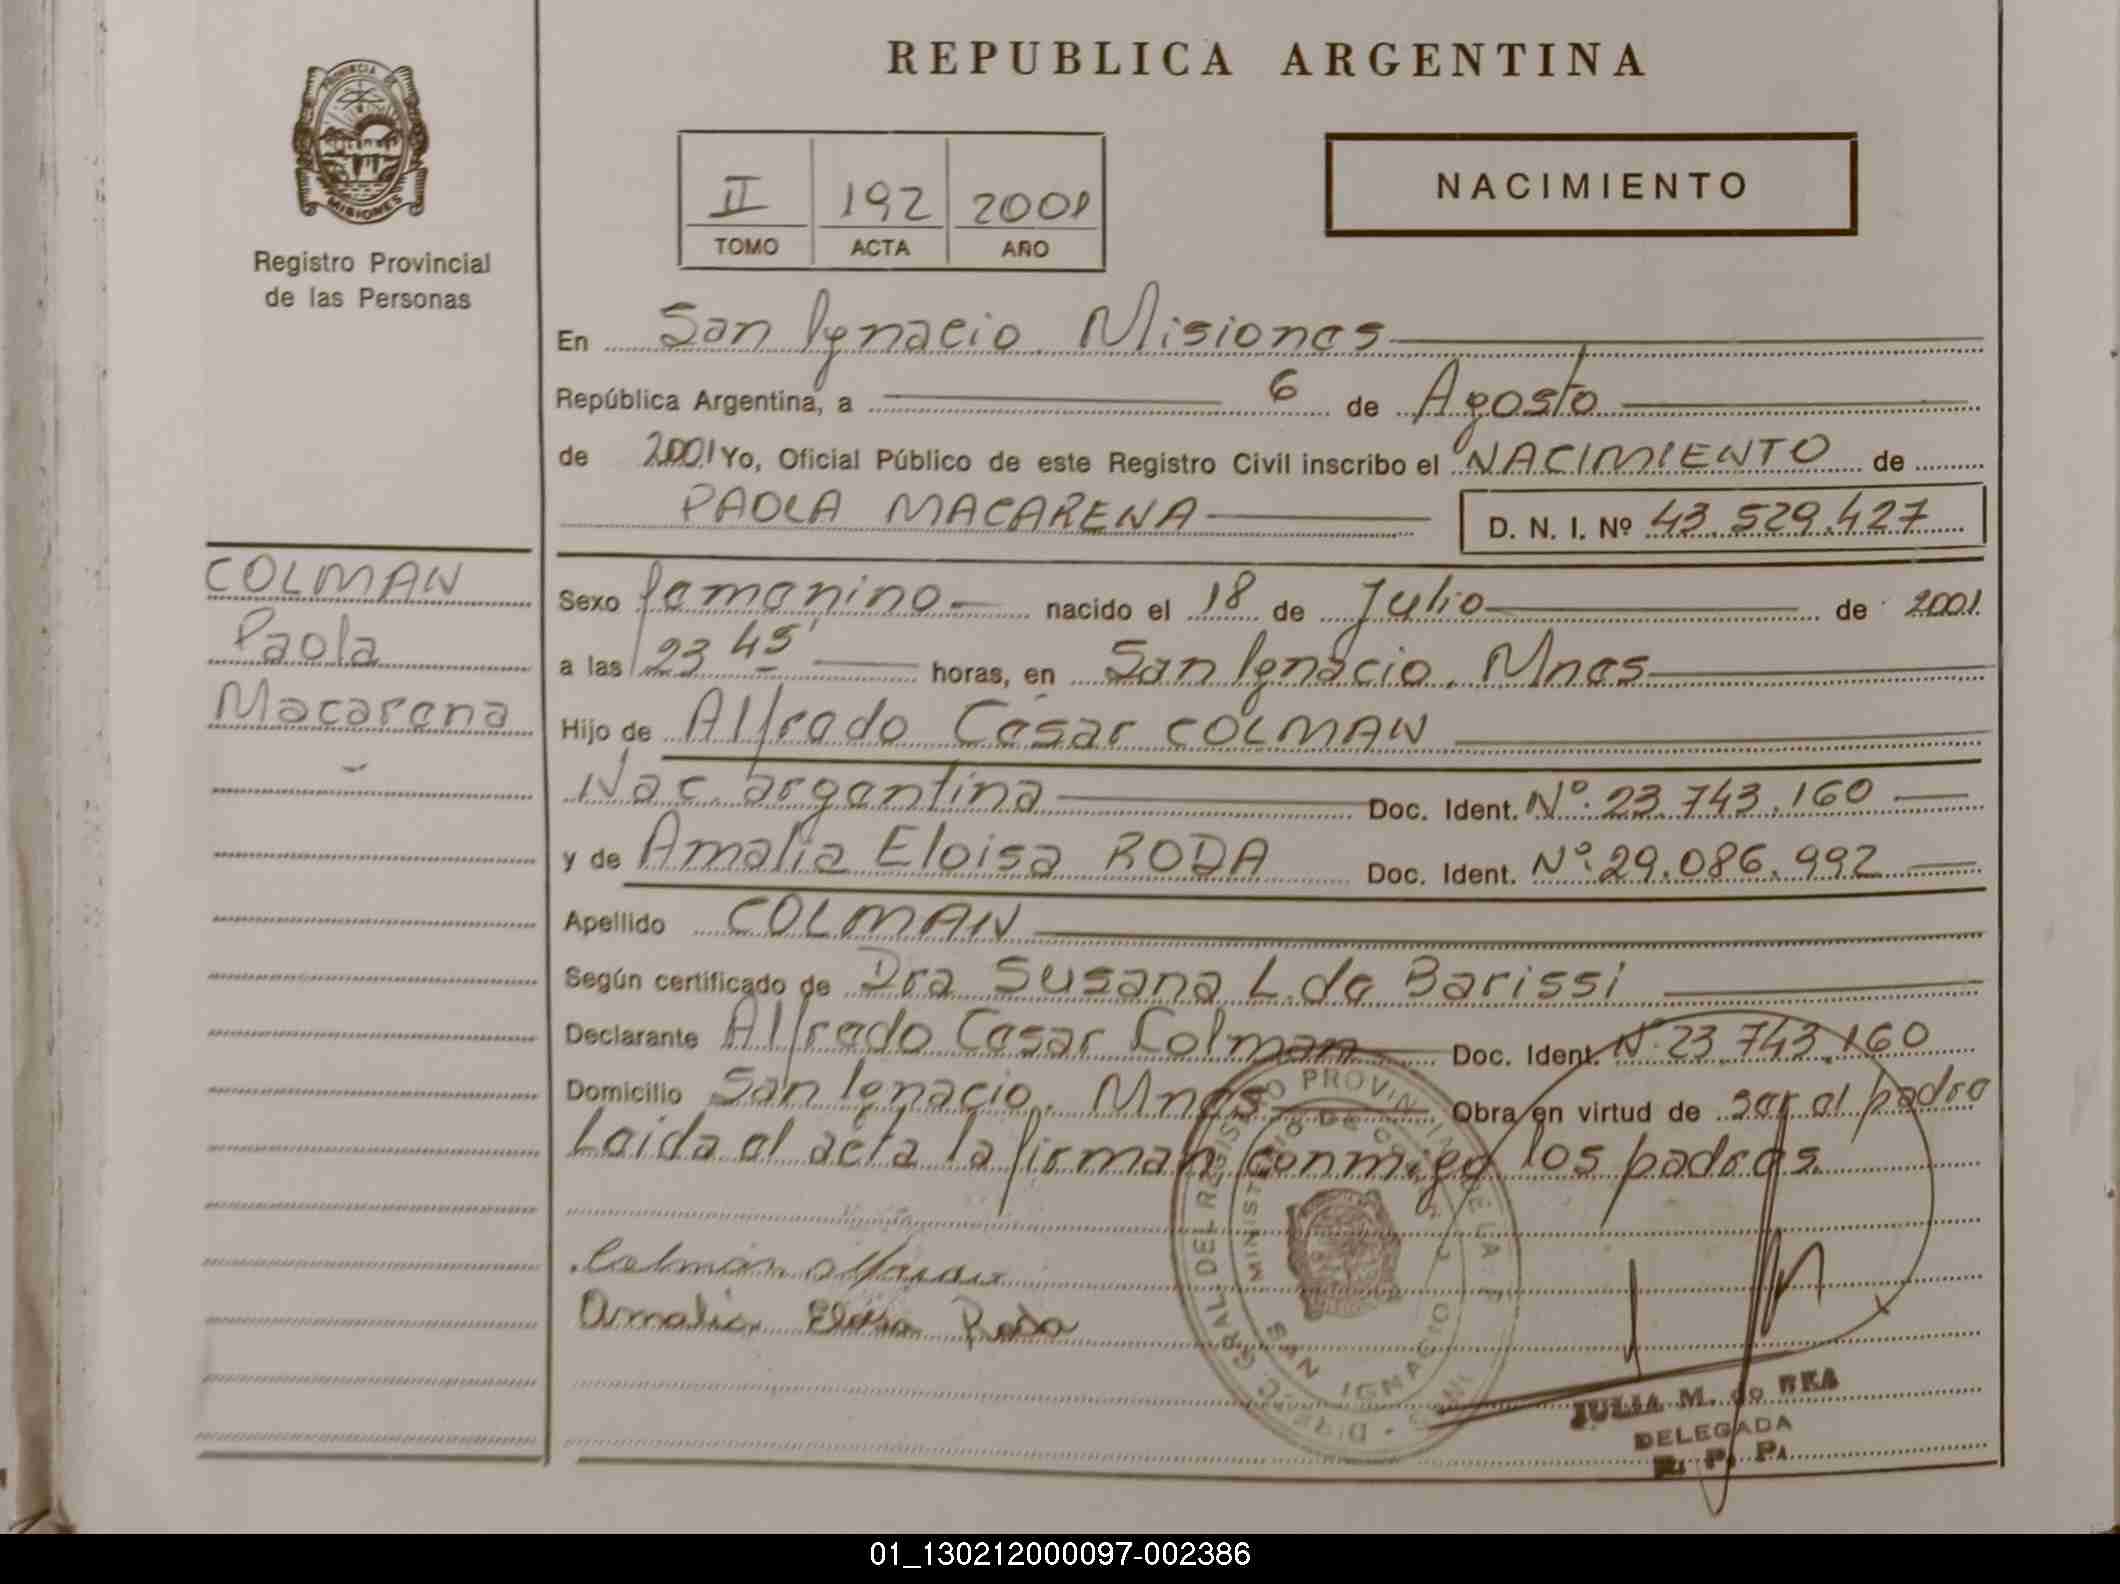 REPUBLICA ARGENTINA
PROVINCIA DE
MISIONES
Registro Provincial
de las Personas
II 192 2001
TOMO ACTA AÑO
NACIMIENTO
En San Ignacio Misiones
República Argentina, a 6 de Agosto
de 2001 Yo, Oficial Público de este Registro Civil inscribo el NACIMIENTO de
PAOLA MACARENA D. N. I. Nº 43.529.427
COLMAN
Paola
Macarena
Sexo femenino nacido el 18 de Julio de 2001
a las 23 45' horas, en San Ignacio. Mnes
Hijo de Alfredo César COLMAN
Nac. argentina Doc. Ident. Nº 23.743.160
y de Amalia Eloisa RODA Doc. Ident. Nº 29.086.992
Apellido COLMAN
Según certificado de Dra Susana L. de Barissi
Declarante Alfredo Cesar Colman Doc. Ident. Nº 23.743.160
Domicilio San Ignacio. Mnes Obra en virtud de ser el padre
Leida el acta la firman conmigo los padres.
Colman Alfredo
Amalia Eloisa Roda
DIREC. GRAL. DEL REGISTRO PROVINCIAL DE LA
MINISTERIO DE
SAN IGNACIO
JULIA M. de REA
DELEGADA
R. P. P.
01_130212000097-002386